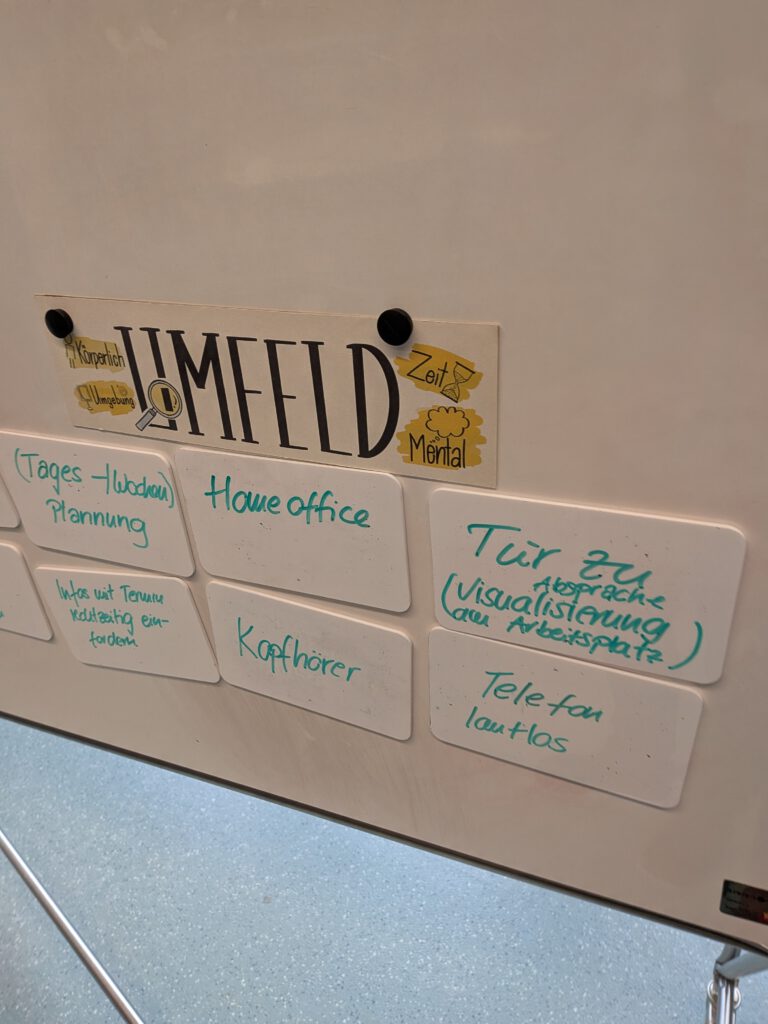 Körperlich
Umgebung
UMFELD
Zeit
Mental
(Tages-/Wochen)
Plannung
Homeoffice
Tür zu
Absprache
(Visualisierung
am Arbeitsplatz)
Infos mit Termin
rechtzeitig ein-
fordern
Kopfhörer
Telefon
lautlos